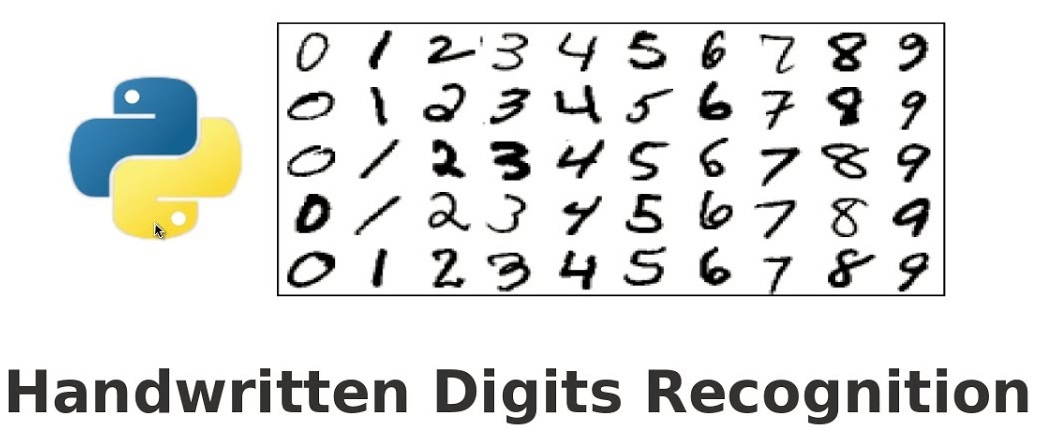 0 1 2 3 4 5 6 7 8 9
0 1 2 3 4 5 6 7 8 9
0 1 2 3 4 5 6 7 8 9
0 1 2 3 4 5 6 7 8 9
0 1 2 3 4 5 6 7 8 9
Handwritten Digits Recognition